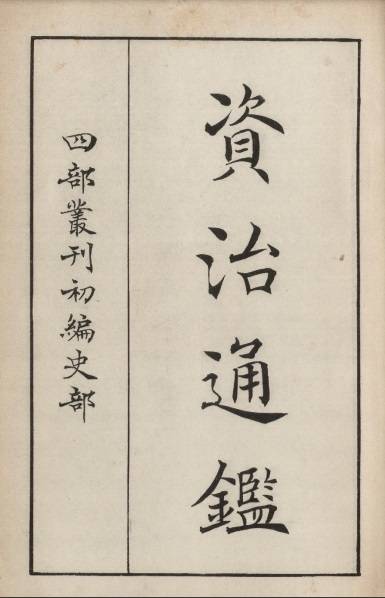 資治通鑑
四部叢刊初編史部